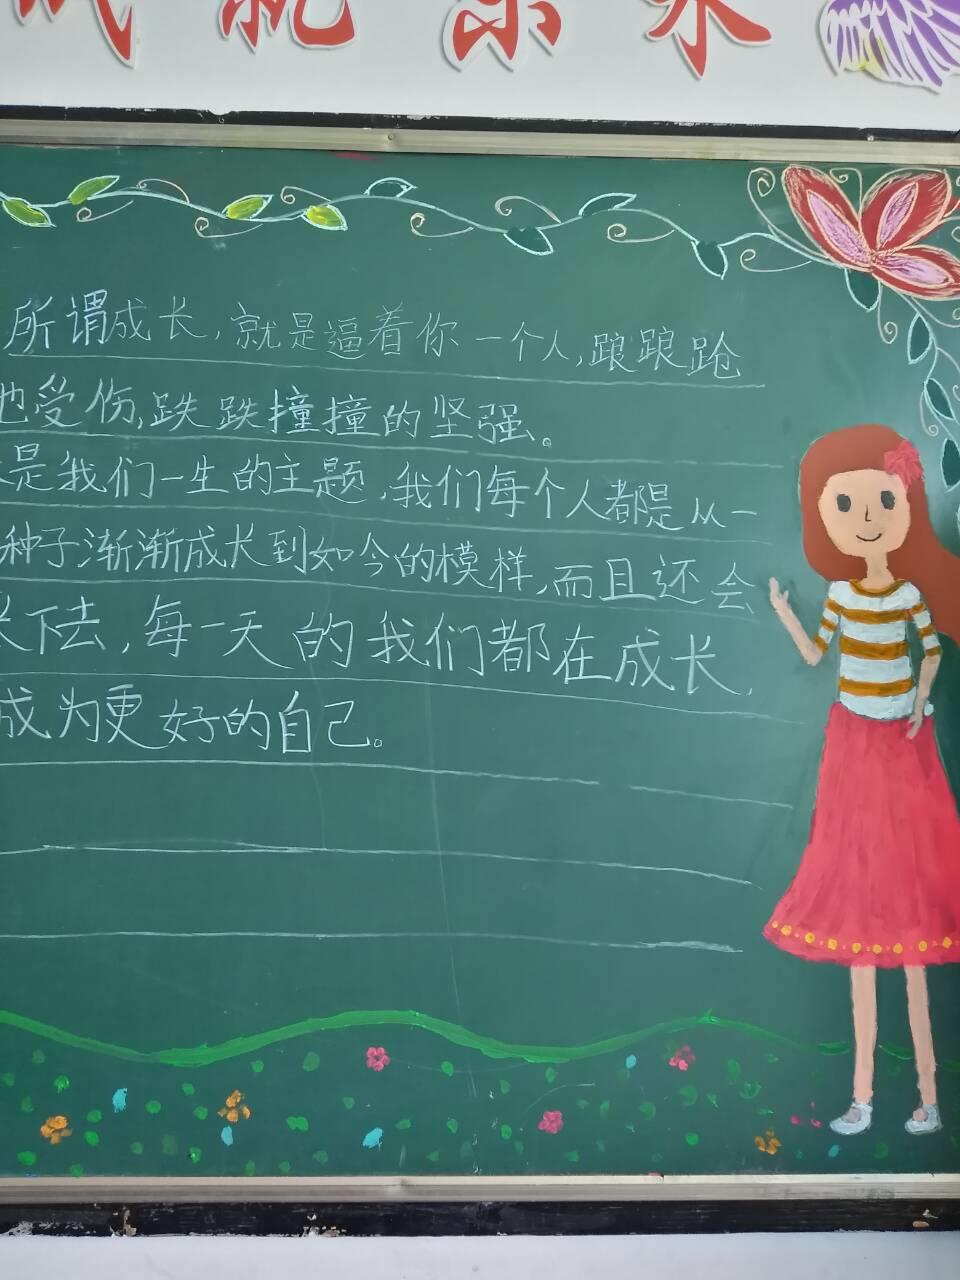 成就
所谓成长,就是逼着你一个人,踉踉跄
受伤,跌跌撞撞的坚强。
是我们一生的主题,我们每个人都是从一
种子渐渐成长到如今的模样,而且还会
长下去,每一天的我们都在成长,
成为更好的自己。